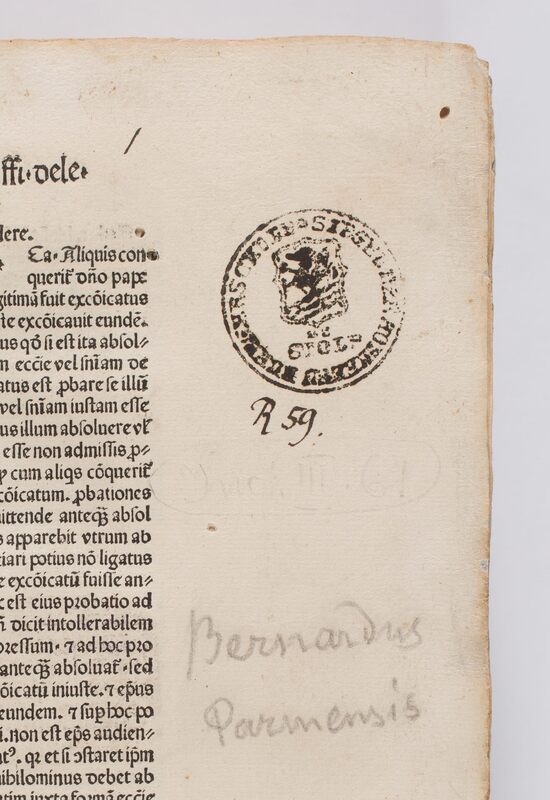 ffi·dele·
dere.
Ca·Aliquis con-
querit̃ dño pape
gitimã fuit excõicatus
ste excõicauit eundẽ.
us qõ si est ita absol-
m eccĩe vel sñiam de
atus est ꝓbare se illũ
vel sñiam iustam esse
us illum absoluere vł
esse non admissis ꝓ-
cum aliq̃s cõquerit̃
cõicatum. ꝓbationes
mittende anteq̃ȝ absol
s apparebit vtrum ab
iari potius nõ ligatus
e excõicatũ fuisse an-
c est eius probatio ad
dicit intollerabilem
pressum· ⁊ ad hoc pro
anteq̃ȝ absoluat̃·sed
õicatũ iniuste.⁊ ep̃us
eundem. ⁊ sup̱ hoc po
i.non est ep̃s audien-
qꝛ et si ↄstaret ip̃m
nihilominus debet ab
R 59.
Bernardus
Parmensis